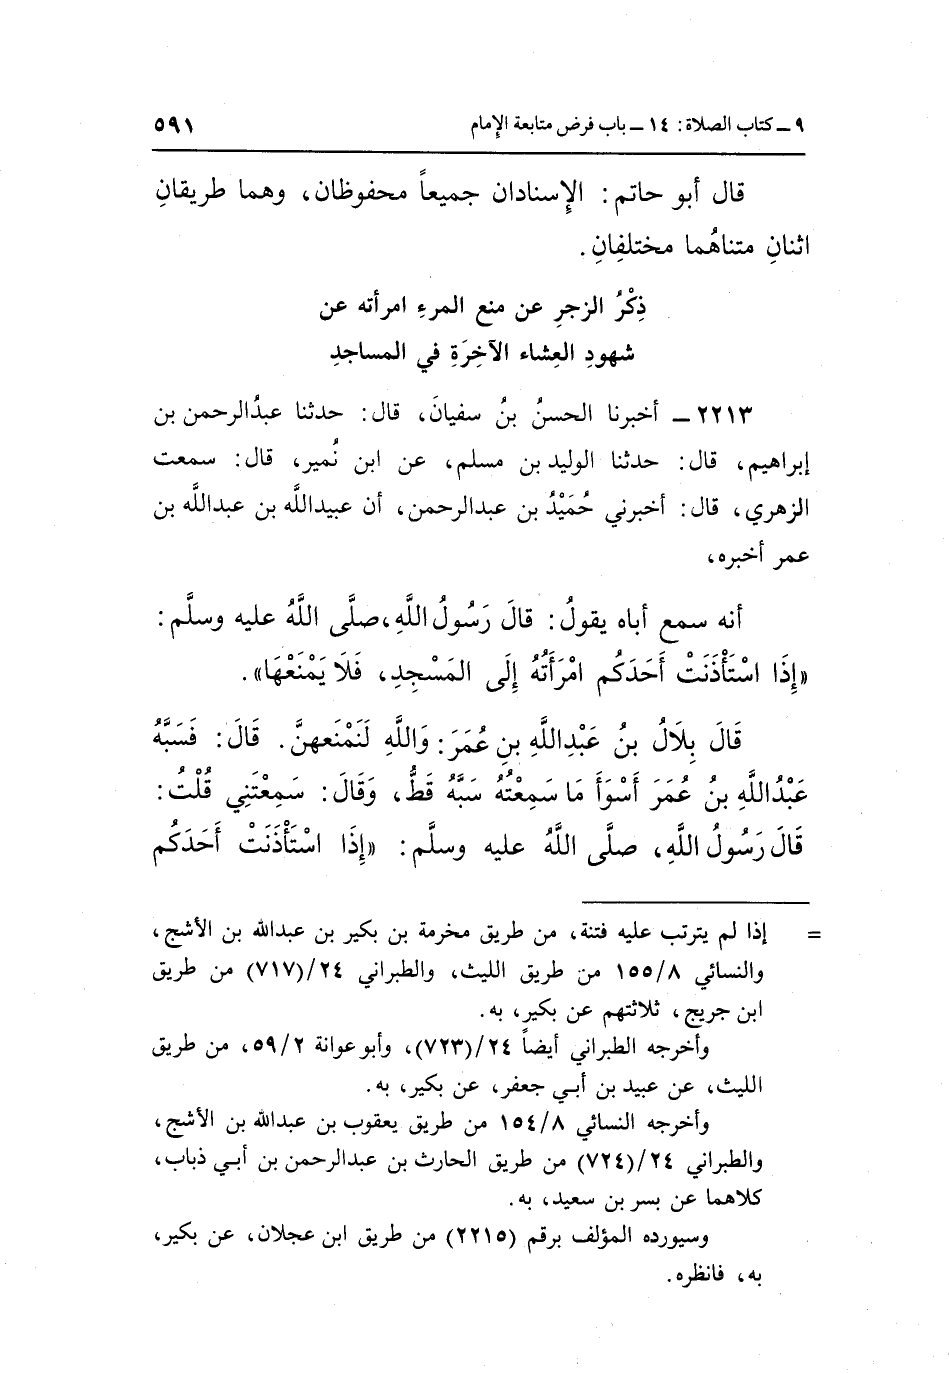 ٩ ــ كتاب الصلاة: ١٤ ــ باب فرض متابعة الإمام ٥٩١
قال أبو حاتم: الإسنادان جميعاً محفوظان، وهما طريقانِ
اثنانِ متناهُما مختلفِانِ.
ذِكْرُ الزجرِ عن منع المرءِ امرأته عن
شهودِ العِشاء الآخِرَةِ في المساجدِ
٢٢١٣ ــ أخبرنا الحسنُ بنُ سفيانَ، قال: حدثنا عبدُالرحمن بن
إبراهيم، قال: حدثنا الوليد بن مسلم، عن ابن نُمير، قال: سمعت
الزهري، قال: أخبرني حُمَيْدُ بن عبدالرحمن، أن عبيداللَّه بن عبداللَّه بن
عمر أخبره،
أنه سمع أباه يقولُ: قالَ رَسُولُ اللَّهِ، صلَّى اللَّهُ عليه وسلَّم:
«إِذَا اسْتَأْذَنَتْ أَحَدَكُم امْرَأَتُهُ إِلَى المَسْجِدِ، فَلَا يَمْنَعْهَا».
قَالَ بِلَالُ بنُ عَبْدِاللَّهِ بنِ عُمَرَ: وَاللَّهِ لَنَمْنَعهنَّ. قَالَ: فَسَبَّهُ
عَبْدُاللَّهِ بنُ عُمَرَ أَسْوَأَ مَا سَمِعْتُهُ سَبَّهُ قَطُّ، وَقَالَ: سَمِعْتَنِي قُلْتُ:
قَالَ رَسُولُ اللَّهِ، صلَّى اللَّهُ عليه وسلَّم: «إِذَا اسْتَأْذَنَتْ أَحَدَكُم
= إذا لم يترتب عليه فتنة، من طريق مخرمة بن بكير بن عبدالله بن الأشج،
والنسائي ١٥٥/٨ من طريق الليث، والطبراني ٢٤/(٧١٧) من طريق
ابن جريج، ثلاثتهم عن بكير، به.
وأخرجه الطبراني أيضاً ٢٤/(٧٢٣)، وأبو عوانة ٥٩/٢، من طريق
الليث، عن عبيد بن أبـي جعفر، عن بكير، به.
وأخرجه النسائي ١٥٤/٨ من طريق يعقوب بن عبدالله بن الأشج،
والطبراني ٢٤/(٧٢٤) من طريق الحارث بن عبدالرحمن بن أبـي ذباب،
كلاهما عن بسر بن سعيد، به.
وسيورده المؤلف برقم (٢٢١٥) من طريق ابن عجلان، عن بكير،
به، فانظره.